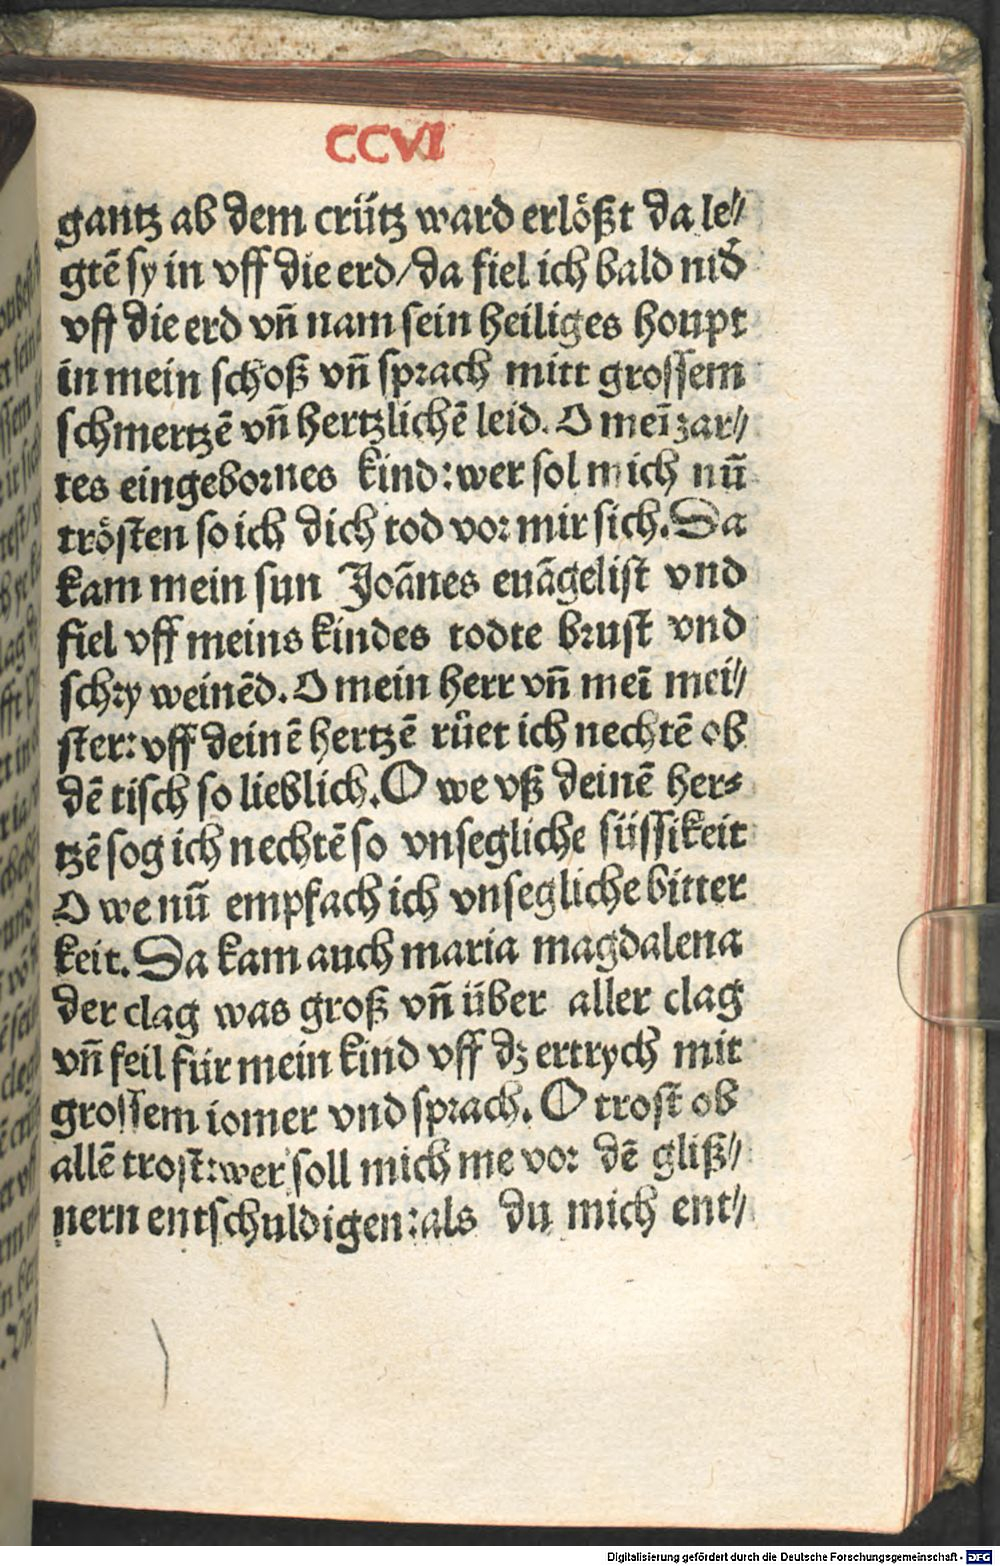 CCVI
gantz ab dem crütz ward erlößt da le⸗
gtē sy in vff die erd/da fiel ich bald nid̕
vff die erd vn̄ nam sein heiliges houpt
in mein schoß vn̄ sprach mitt grossem
schmertzē vn̄ hertzlichē leid. O meī zar⸗
tes eingebornes kind:wer sol mich nū
trösten so ich dich tod vor mir sich. Da
kam mein sun Joānes euāgelist vnd
fiel vff meins kindes todte brust vnd
schry weinēd. O mein herr vn̄ meī mei⸗
ster: vff deinē hertzē růet ich nechtē ob
dē tisch so lieblich. O we vß deinē her⸗
tzē sog ich nechtē so vnsegliche süssikeit
O we nū empfach ich vnsegliche bitter
keit. Da kam auch maria magdalena
der clag was groß vn̄ über aller clag
vn̄ feil für mein kind vff dz ertrych mit
grossem iomer vnd sprach. O trost ob
allē trost:wer soll mich me vor dē gliß⸗
nern entschuldigen:als du mich ent⸗
Digitalisierung gefördert durch die Deutsche Forschungsgemeinschaft - DFG